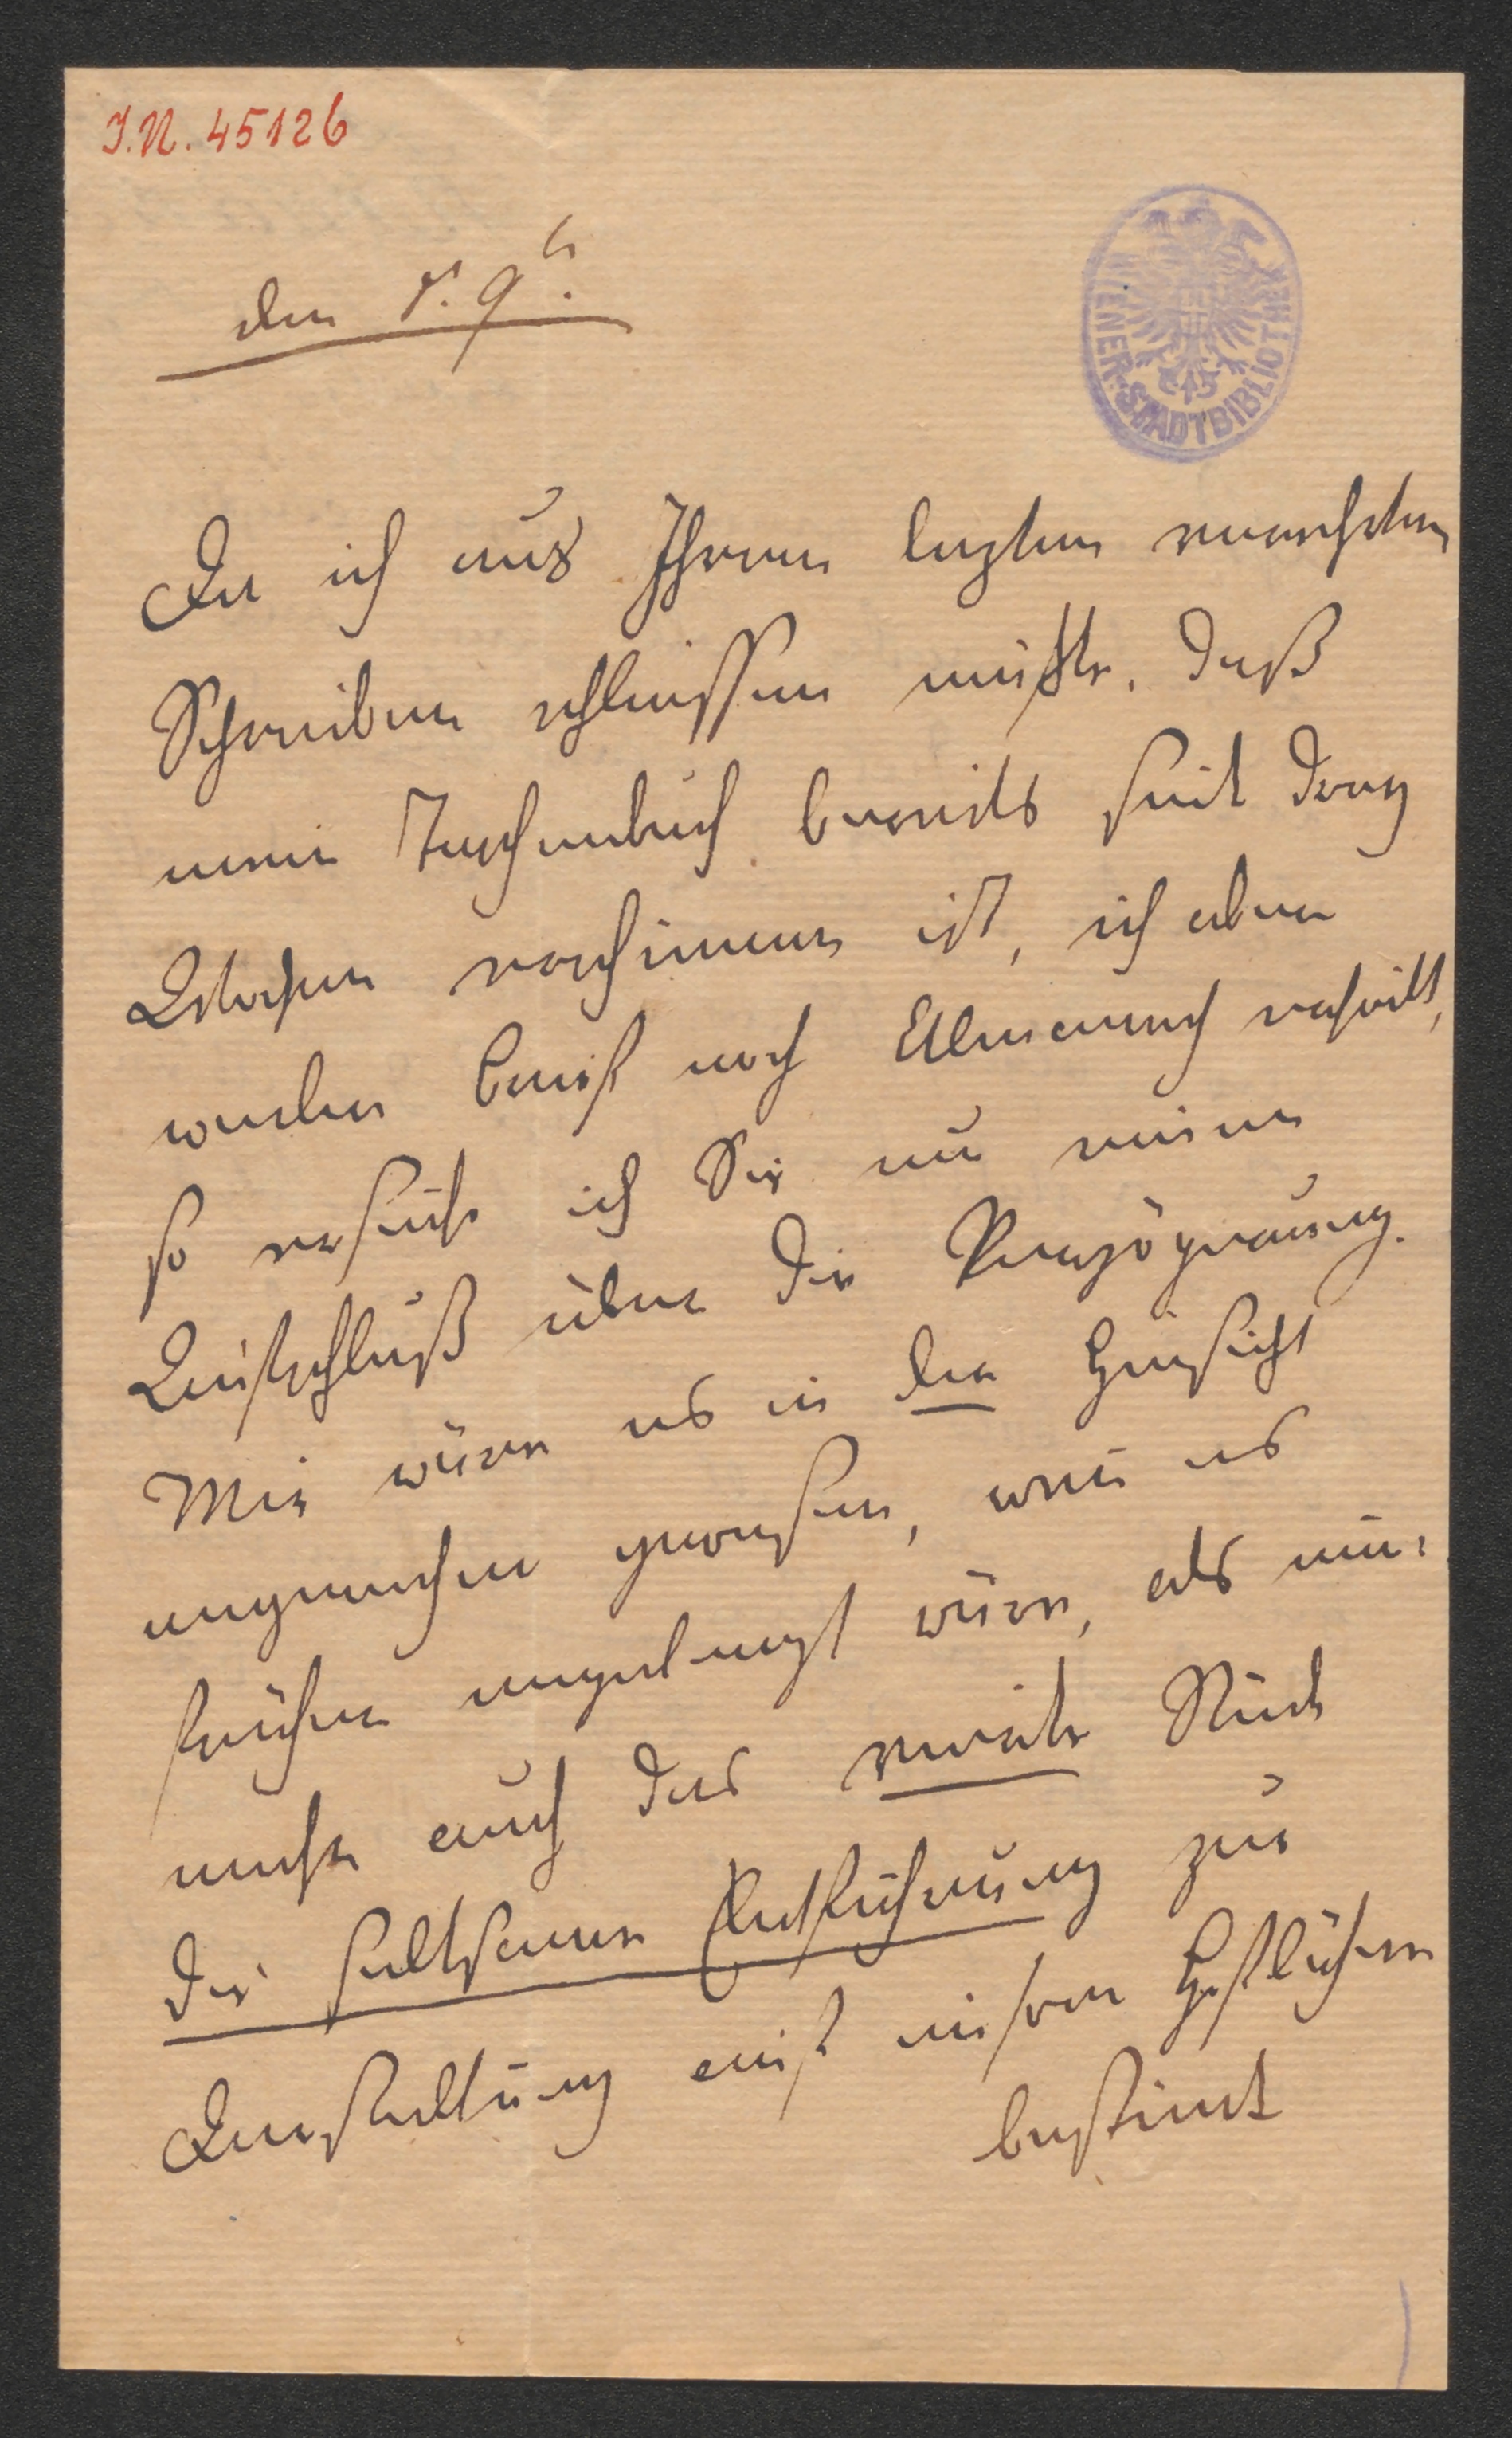 I.N. 45126
den 8. 9b.
WIENER-STADTBIBLIOTHEK
Da ich aus Ihrem lezten werthen
Schreiben schliessen mußte, daß
mein Taschenbuch bereits seit drey
Wochen erschienen ist, ich aber
weder Brief noch Almanach erhielt,
so ersuche ich Sie um einen
Aufschluß über die Verzögerung.
Mir wäre es in der Hinsicht
angenehm gewesen, wenn es
früher angelangt wäre, als nun-
mehr auch das zweite Stück
die seltsame Entführung zur
Darstellung auf unserer Hofbühne
bestimt